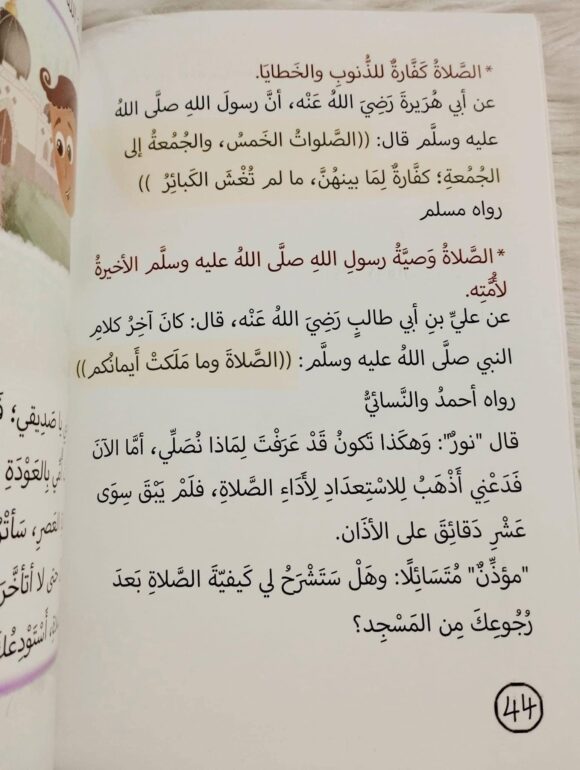 * الصَّلاةُ كَفَّارةٌ للذُّنوبِ والخَطايَا.
عن أبي هُرَيرةَ رَضِيَ اللهُ عَنْه، أنَّ رسولَ اللهِ صلَّى اللهُ
عليه وسلَّم قال: ((الصَّلواتُ الخَمسُ، والجُمُعةُ إلى
الجُمُعةِ؛ كفَّارةٌ لِمَا بينهُنَّ، ما لم تُغْشَ الكَبائِرُ ))
رواه مسلم
* الصَّلاةُ وَصيَّةُ رسولِ اللهِ صلَّى اللهُ عليه وسلَّم الأخيرةُ
لأُمَّتِه.
عن عليِّ بنِ أبي طالبٍ رَضِيَ اللهُ عَنْه، قال: كانَ آخِرُ كلامِ
النبي صلَّى اللهُ عليه وسلَّم: ((الصَّلاةَ وما مَلَكتْ أَيمانُكم))
رواه أحمدُ والنَّسائيُّ
قال "نورٌ": وَهكَذا تَكونُ قَدْ عَرَفْتَ لِمَاذا نُصَلِّي، أمَّا الآنَ
فَدَعْنِي أَذْهَبُ لِلاسْتِعدَادِ لِأَدَاءِ الصَّلاةِ، فلَمْ يَبْقَ سِوَى
عَشْرِ دَقائِقَ على الأذَان.
"مؤذِّنٌ" مُتَسَائِلًا: وهَلْ سَتَشْرَحُ لي كَيفيّةَ الصَّلاةِ بَعدَ
رُجُوعِكَ مِن المَسْجِد؟
44
يا صَدِيقي؛
بِالعَوْدَةِ
العَصرِ، سَأتْرُ
لا أتأخَّرَ
أَسْتَوْدِعُكَ